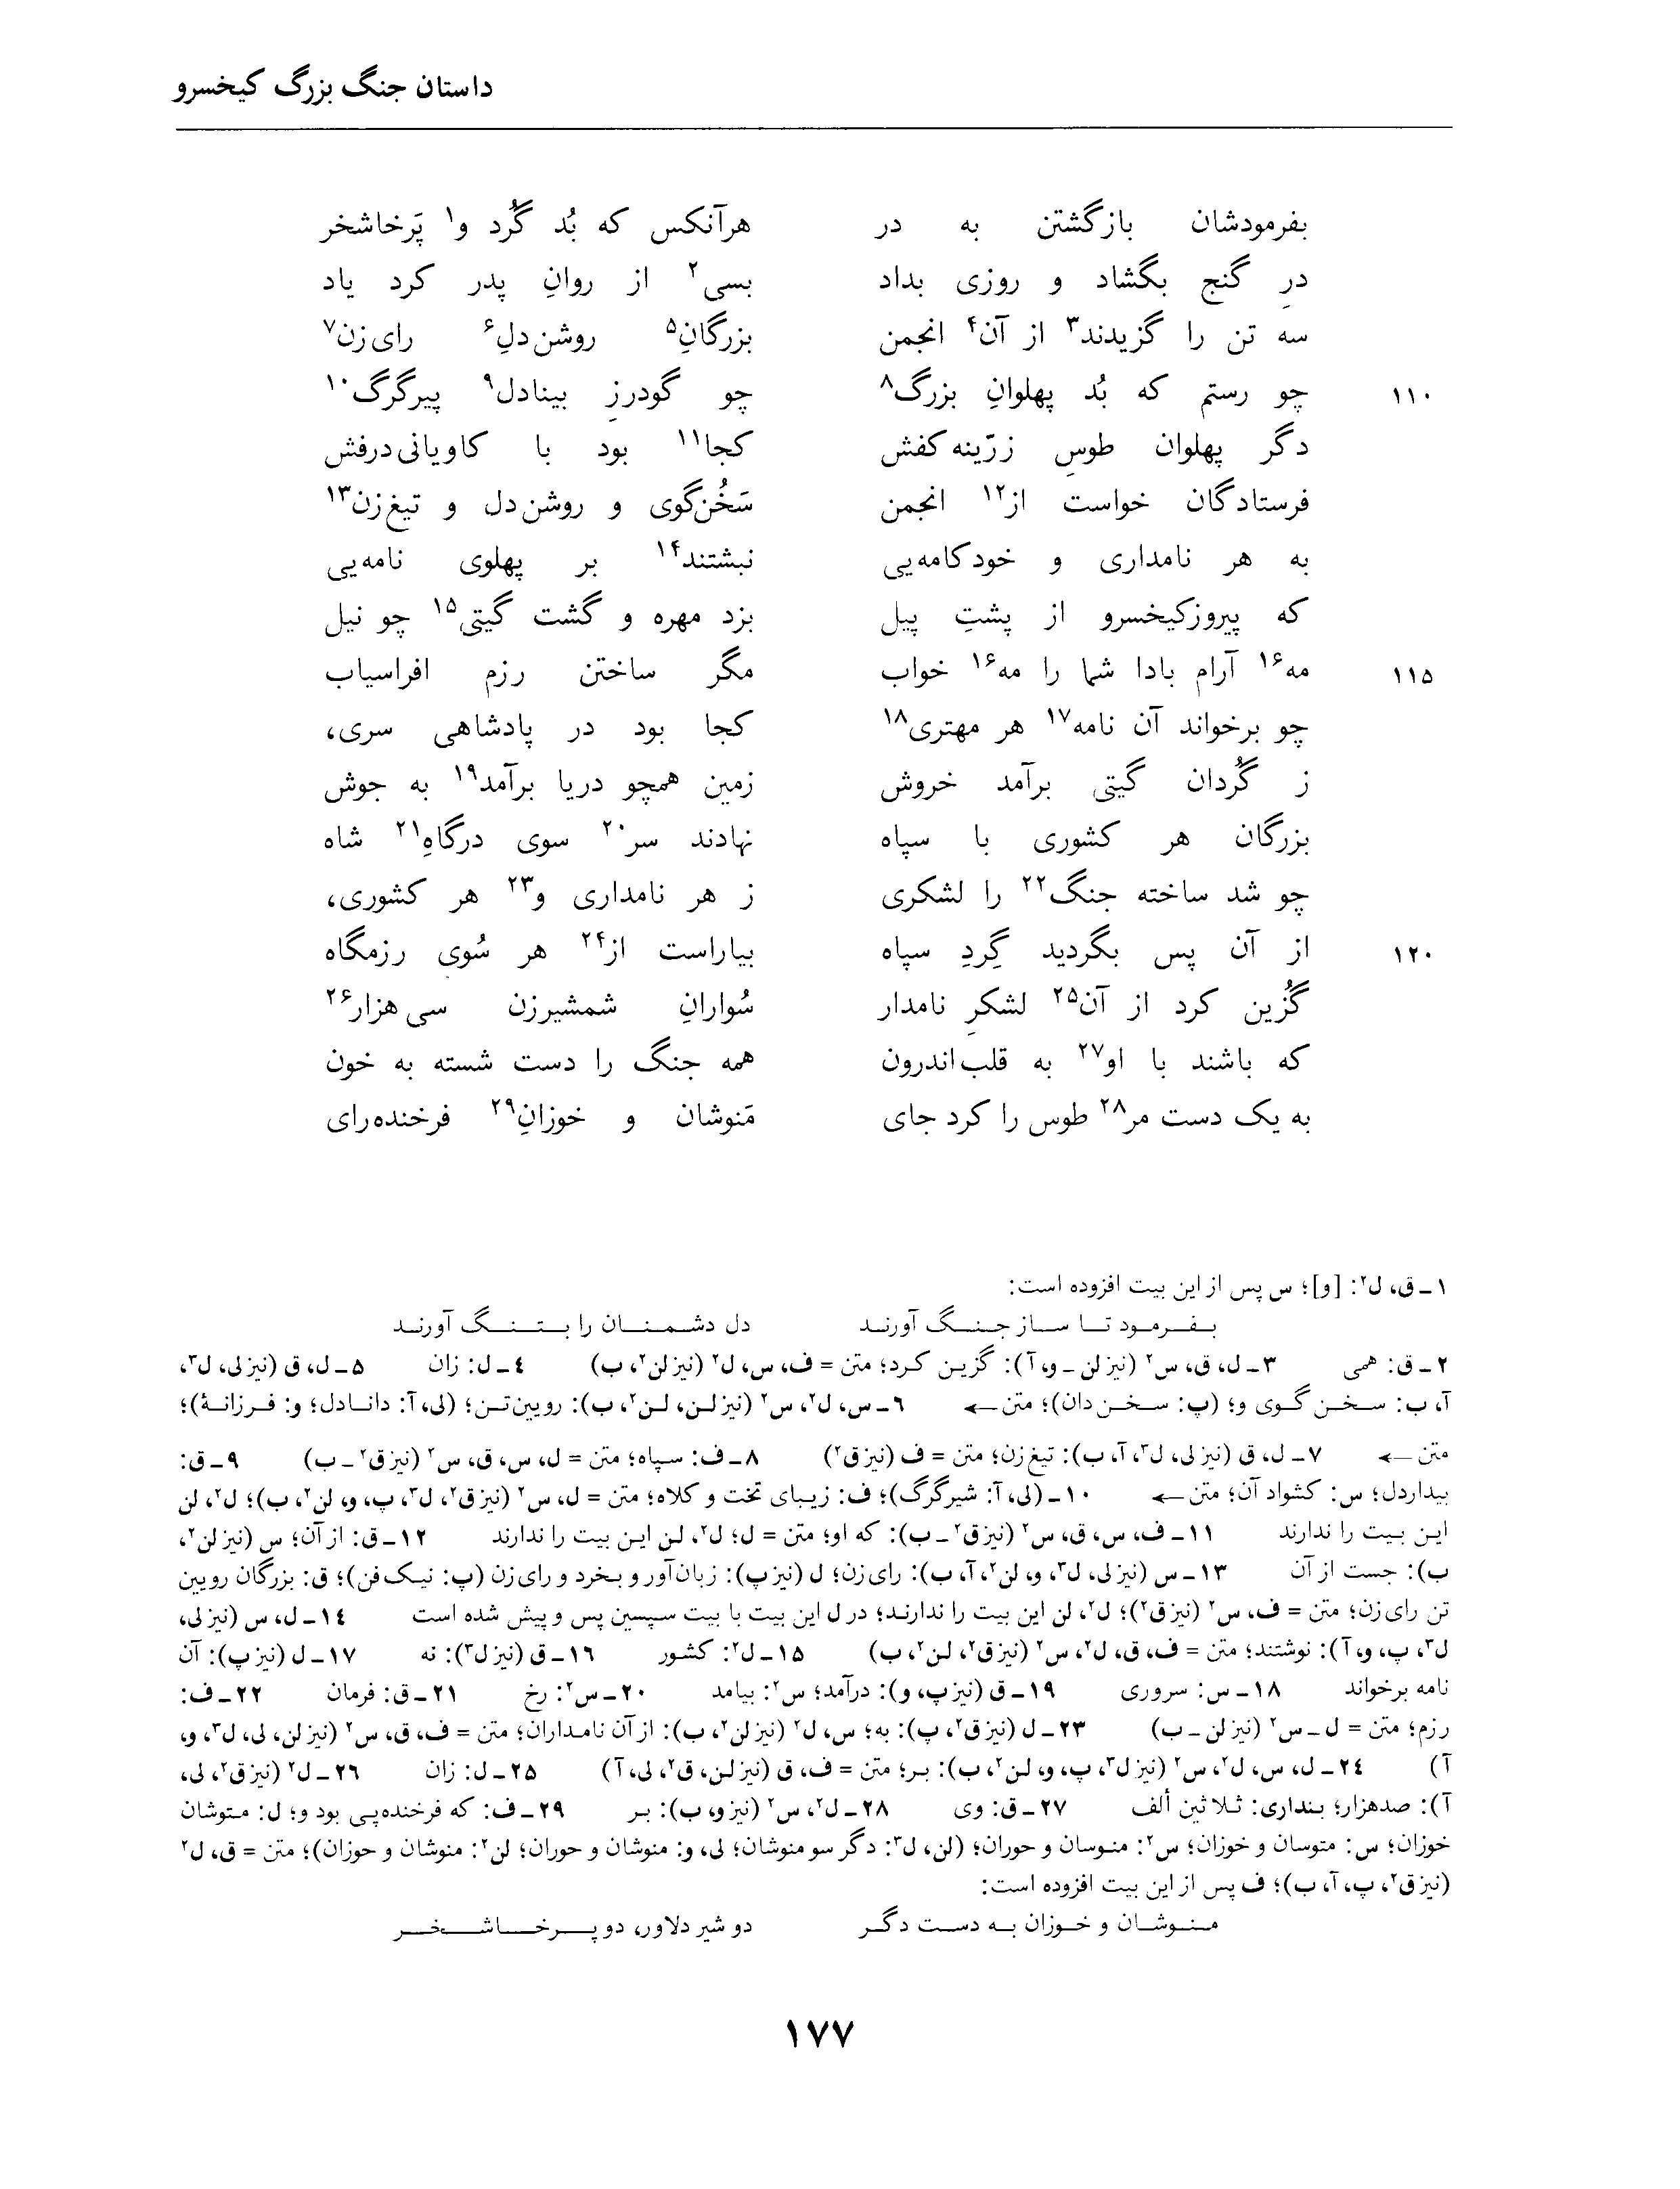 داستان جنگ بزرگ کیخسرو
بفرمودشان بازگشتن به در هرآنکس که بُد گُرد و۱ پَرخاشخر
درِ گنج بگشاد و روزی بداد بسی۲ از روانِ پدر کرد یاد
سه تن را گزیدند۳ از آن۴ انجمن بزرگانِ۵ روشن‌دلِ۶ رای‌زن۷
۱۱۰ چو رستم که بُد پهلوانِ بزرگ۸ چو گودرزِ بینادل۹ پیرگرگ۱۰
دگر پهلوان طوسِ زرّینه‌کفش کجا۱۱ بود با کاویانی‌درفش
فرستادگان خواست از۱۲ انجمن سَخُن‌گوی و روشن‌دل و تیغ‌زن۱۳
به هر نامداری و خودکامه‌یی نبشتند۱۴ بر پهلوی نامه‌یی
که پیروزکیخسرو از پشتِ پیل بزد مهره و گشت گیتی۱۵ چو نیل
۱۱۵ مه۱۶ آرام بادا شما را مه۱۶ خواب مگر ساختن رزم افراسیاب
چو برخواند آن نامه۱۷ هر مهتری۱۸ کجا بود در پادشاهی سری،
ز گُردان گیتی برآمد خروش زمین همچو دریا برآمد۱۹ به جوش
بزرگان هر کشوری با سپاه نهادند سر۲۰ سوی درگاهِ۲۱ شاه
چو شد ساخته جنگ۲۲ را لشکری ز هر نامداری و۲۳ هر کشوری،
۱۲۰ از آن پس بگردید گِردِ سپاه بیاراست از۲۴ هر سُوی رزمگاه
گُزین کرد از آن۲۵ لشکرِ نامدار سُوارانِ شمشیرزن سی‌هزار۲۶
که باشند با او۲۷ به قلب‌اندرون همه جنگ را دست شسته به خون
به یک دست مر۲۸ طوس را کرد جای مَنوشان و خوزانِ۲۹ فرخنده‌رای
۱ـ ق، ل۲: [و]؛ س پس از این بیت افزوده است:
بفرمود تا ساز جنگ آورند دل دشمنان را بتنگ آورند
۲ـ ق: همی ۳ـ ل، ق، س۲ (نیز لن ـ و، آ): گزین کرد؛ متن = ف، س، ل۲ (نیز لن۲، ب) ۴ـ ل: زان ۵ـ ل، ق (نیز لی، ل۳،
آ، ب: سخن گوی و؛ (پ: سخن دان)؛ متن ← ۶ـ س، ل۲، س۲ (نیز لن، لن۲، ب): رویین‌تن؛ (لی، آ: دانادل؛ و: فرزانهٔ)؛
متن ← ۷ـ ل، ق (نیز لی، ل۳، آ، ب): تیغ‌زن؛ متن = ف (نیز ق۲) ۸ـ ف: سپاه؛ متن = ل، س، ق، س۲ (نیز ق۲ ـ ب) ۹ـ ق:
بیداردل؛ س: کشواد آن؛ متن ← ۱۰ـ (لی، آ: شیرگرگ)؛ ف: زیبای تخت و کلاه؛ متن = ل، س۲ (نیز ق۲، ل۳، پ، و، لن۲، ب)؛ ل۲، لن
این بیت را ندارند ۱۱ـ ف، س، ق، س۲ (نیز ق۲ ـ ب): که او؛ متن = ل؛ ل۲، لن این بیت را ندارند ۱۲ـ ق: از آن؛ س (نیز لن۲،
ب): جست از آن ۱۳ـ س (نیز لی، ل۳، و، لن۲، آ، ب): رای‌زن؛ ل (نیز پ): زبان‌آور و بخرد و رای‌زن (پ: نیک‌فن)؛ ق: بزرگان رویین
تن رای‌زن؛ متن = ف، س۲ (نیز ق۲)؛ ل۲، لن این بیت را ندارند؛ در ل این بیت با بیت سپسین پس و پیش شده است ۱۴ـ ل، س (نیز لی،
ل۳، پ، و، آ): نوشتند؛ متن = ف، ق، ل۲، س۲ (نیز ق۲، لن۲، ب) ۱۵ـ ل۲: کشور ۱۶ـ ق (نیز ل۳): نه ۱۷ـ ل (نیز پ): آن
نامه برخواند ۱۸ـ س: سروری ۱۹ـ ق (نیز پ، و): درآمد؛ س۲: بیامد ۲۰ـ س۲: رخ ۲۱ـ ق: فرمان ۲۲ـ ف:
رزم؛ متن = ل ـ س۲ (نیز لن ـ ب) ۲۳ـ ل (نیز ق۲، پ): به؛ س، ل۲ (نیز لن۲، ب): از آن نامداران؛ متن = ف، ق، س۲ (نیز لن، لی، ل۳، و،
آ) ۲۴ـ ل، س، ل۲، س۲ (نیز ل۳، پ، و، لن۲، ب): بر؛ متن = ف، ق (نیز لن، ق۲، لی، آ) ۲۵ـ ل: زان ۲۶ـ ل۲ (نیز ق۲، لی،
آ): صدهزار؛ بنداری: ثلاثین ألف ۲۷ـ ق: وی ۲۸ـ ل۲، س۲ (نیز و، ب): بر ۲۹ـ ف: که فرخنده‌پی بود و؛ ل: متوشان
خوزان؛ س: متوسان و خوزان؛ س۲: منوسان و حوران؛ (لن، ل۳: دگر سو منوشان؛ لی، و: منوشان و حوران؛ لن۲: منوشان و حوزان)؛ متن = ق، ل۲
(نیز ق۲، پ، آ، ب)؛ ف پس از این بیت افزوده است:
منوشان و خوزان به دست دگر دو شیر دلاور، دو پرخاشخر
۱۷۷